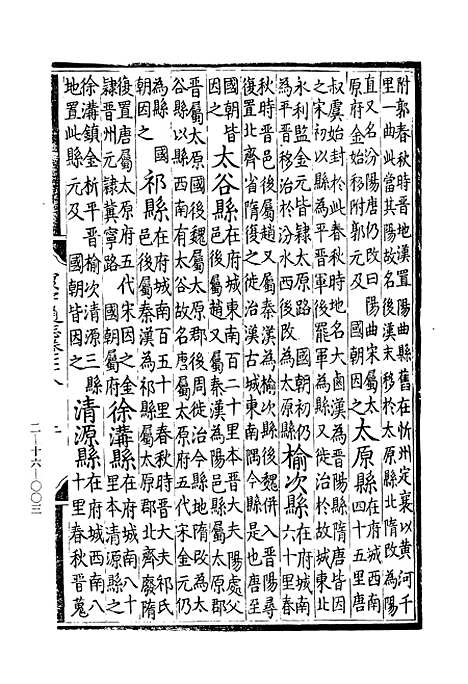 附郭春秋時晉地漢置陽曲縣舊在忻州定襄以黃河千
里一曲此當其陽故名漢末移於太原縣北隋改為陽
直又名汾陽唐仍改曰陽曲宋屬太
原府金始移附郭元及國朝因之
太原縣
在府城西南
四十五里唐
叔虞始封於此春秋時地名大鹵漢為晉陽縣隋唐皆因
之宋初以縣為平晉軍尋罷軍為縣又徙治於故城東北
永利監金元皆隸太原路國朝初仍
為平晉移治於汾水西後改為太原縣
榆次縣
在府城南
六十里春
秋時晉邑後屬趙又屬秦漢為榆次縣後魏併入晉陽尋
復置北齊省隋復之徙治漢古城東南隅今縣是也唐至
國朝皆
因之
太谷縣
在府城東南百二十里本晉大夫陽處父
邑後屬趙又屬秦漢為陽邑縣屬太原
晉屬太原國後魏屬太原郡後周徙治今縣地隋改為太
谷縣以縣西南有太谷故名唐屬太原府五代宋金元仍
為縣國
朝因之
祁縣
在府城南百五十里春秋時晉大夫祁氏
邑後屬秦漢為祁縣屬太原郡北齊廢隋
後置唐屬太原府五代宋因之金
隸晉州元隸冀寧路國朝屬府
徐溝縣
在府城南八十
里本清源縣
徐溝鎮金析平晉榆次清源三縣
地置此縣元及國朝皆因之
清源縣
在府城西南八
十里春秋晉蒐
二—十六—〇〇三